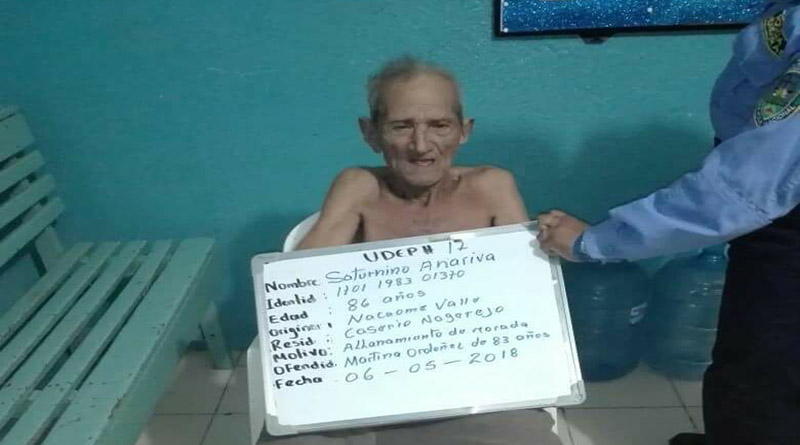 UDEP # 12
Nombre: Saturnino Anariva
Identid: 1701 1983 01370
Edad : 86 años
Originer: Nacaome Valle
Resid : Caserio Nagarejo
Motivo: Allanamiento de morada
Ofendid: Martina Ordeñez de 83 años
Fecha : 06 - 05 - 2018